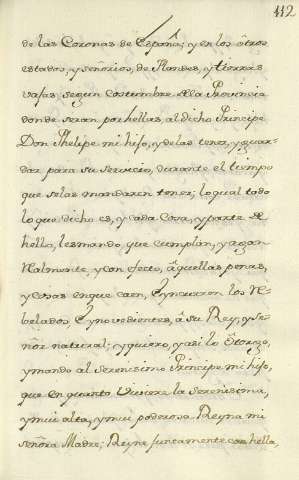 112
de las Coronas de España; y en los ôtros
estados, y señorios, de Flandes, y tierras
vajas, segun costumbre de la Provincia
donde seran por hellas, al dicho Principe
Don Phelipe mi hijo, y de las tener, y guar-
dar para su servicio, durante el tiempo
que se las mandaren tener; lo qual todo
lo que dicho es, y cada cosa, y parte de
hello, les mando, que cumplan, y agan
Realmente, y con efecto, â quellas penas,
y cosas en que caen, e yncurren los Re-
belados e ynovedientes, â su Rey, y Se-
ñor natural; y quiero, y asi lo ôtorgo,
y mando al serenisimo Principe mi hijo,
que en quanto viviere la serenisima,
y mui alta, y mui poderosa Reyna mi
señora Madre; Reyne juncamente con hella,